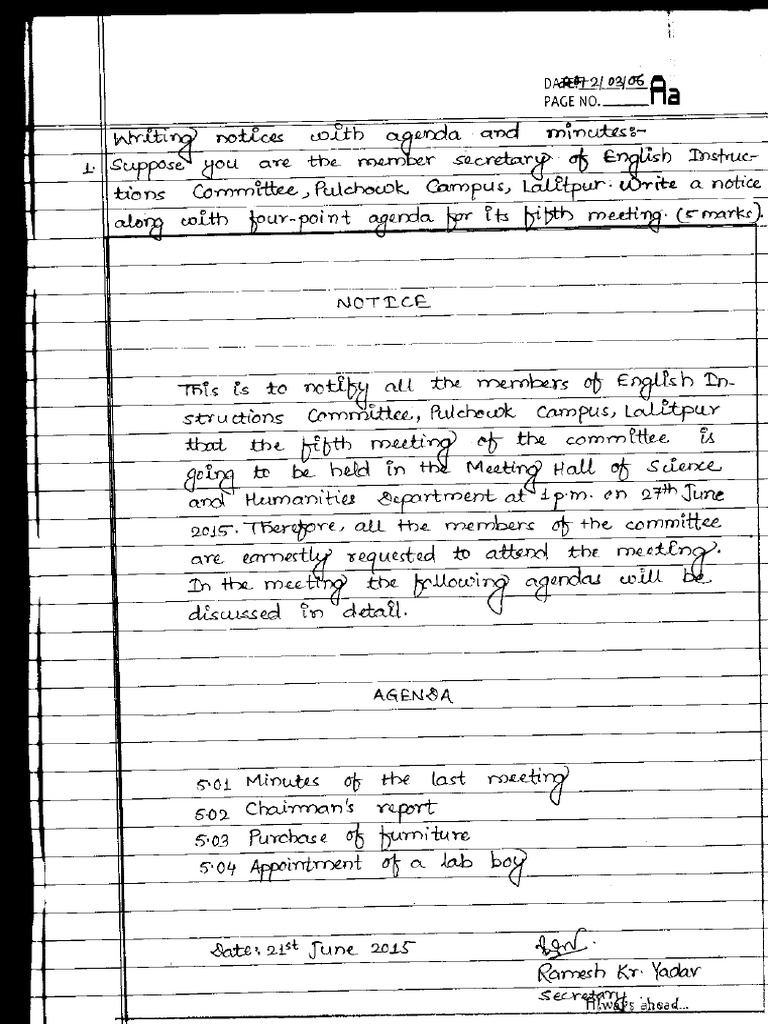 DATE: 2/03/06
PAGE NO. Aa
Writing notices with agenda and minutes:-
1. Suppose you are the member secretary of English Instruc-
tions Committee, Pulchowk Campus, Lalitpur. Write a notice
along with four-point agenda for its fifth meeting. (5 marks).
NOTICE
This is to notify all the members of English In-
structions Committee, Pulchowk Campus, Lalitpur
that the fifth meeting of the committee is
going to be held in the Meeting Hall of Science
and Humanities Department at 1 p.m. on 27th June
2015. Therefore, all the members of the committee
are earnestly requested to attend the meeting.
In the meeting the following agendas will be
discussed in detail.
AGENDA
5.01 Minutes of the last meeting
5.02 Chairman's report
5.03 Purchase of furniture
5.04 Appointment of a lab boy
Date: 21st June 2015
Ramesh Kr. Yadav
Secretary
Always ahead...